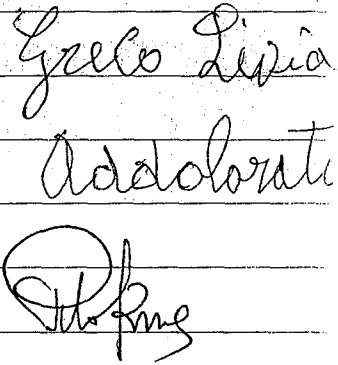 Greco Livia
Addolorat